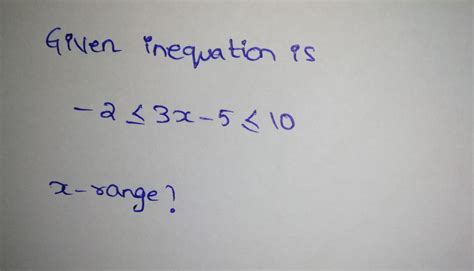 Given inequation is
-2 ≤ 3x-5 ≤ 10
x-range?